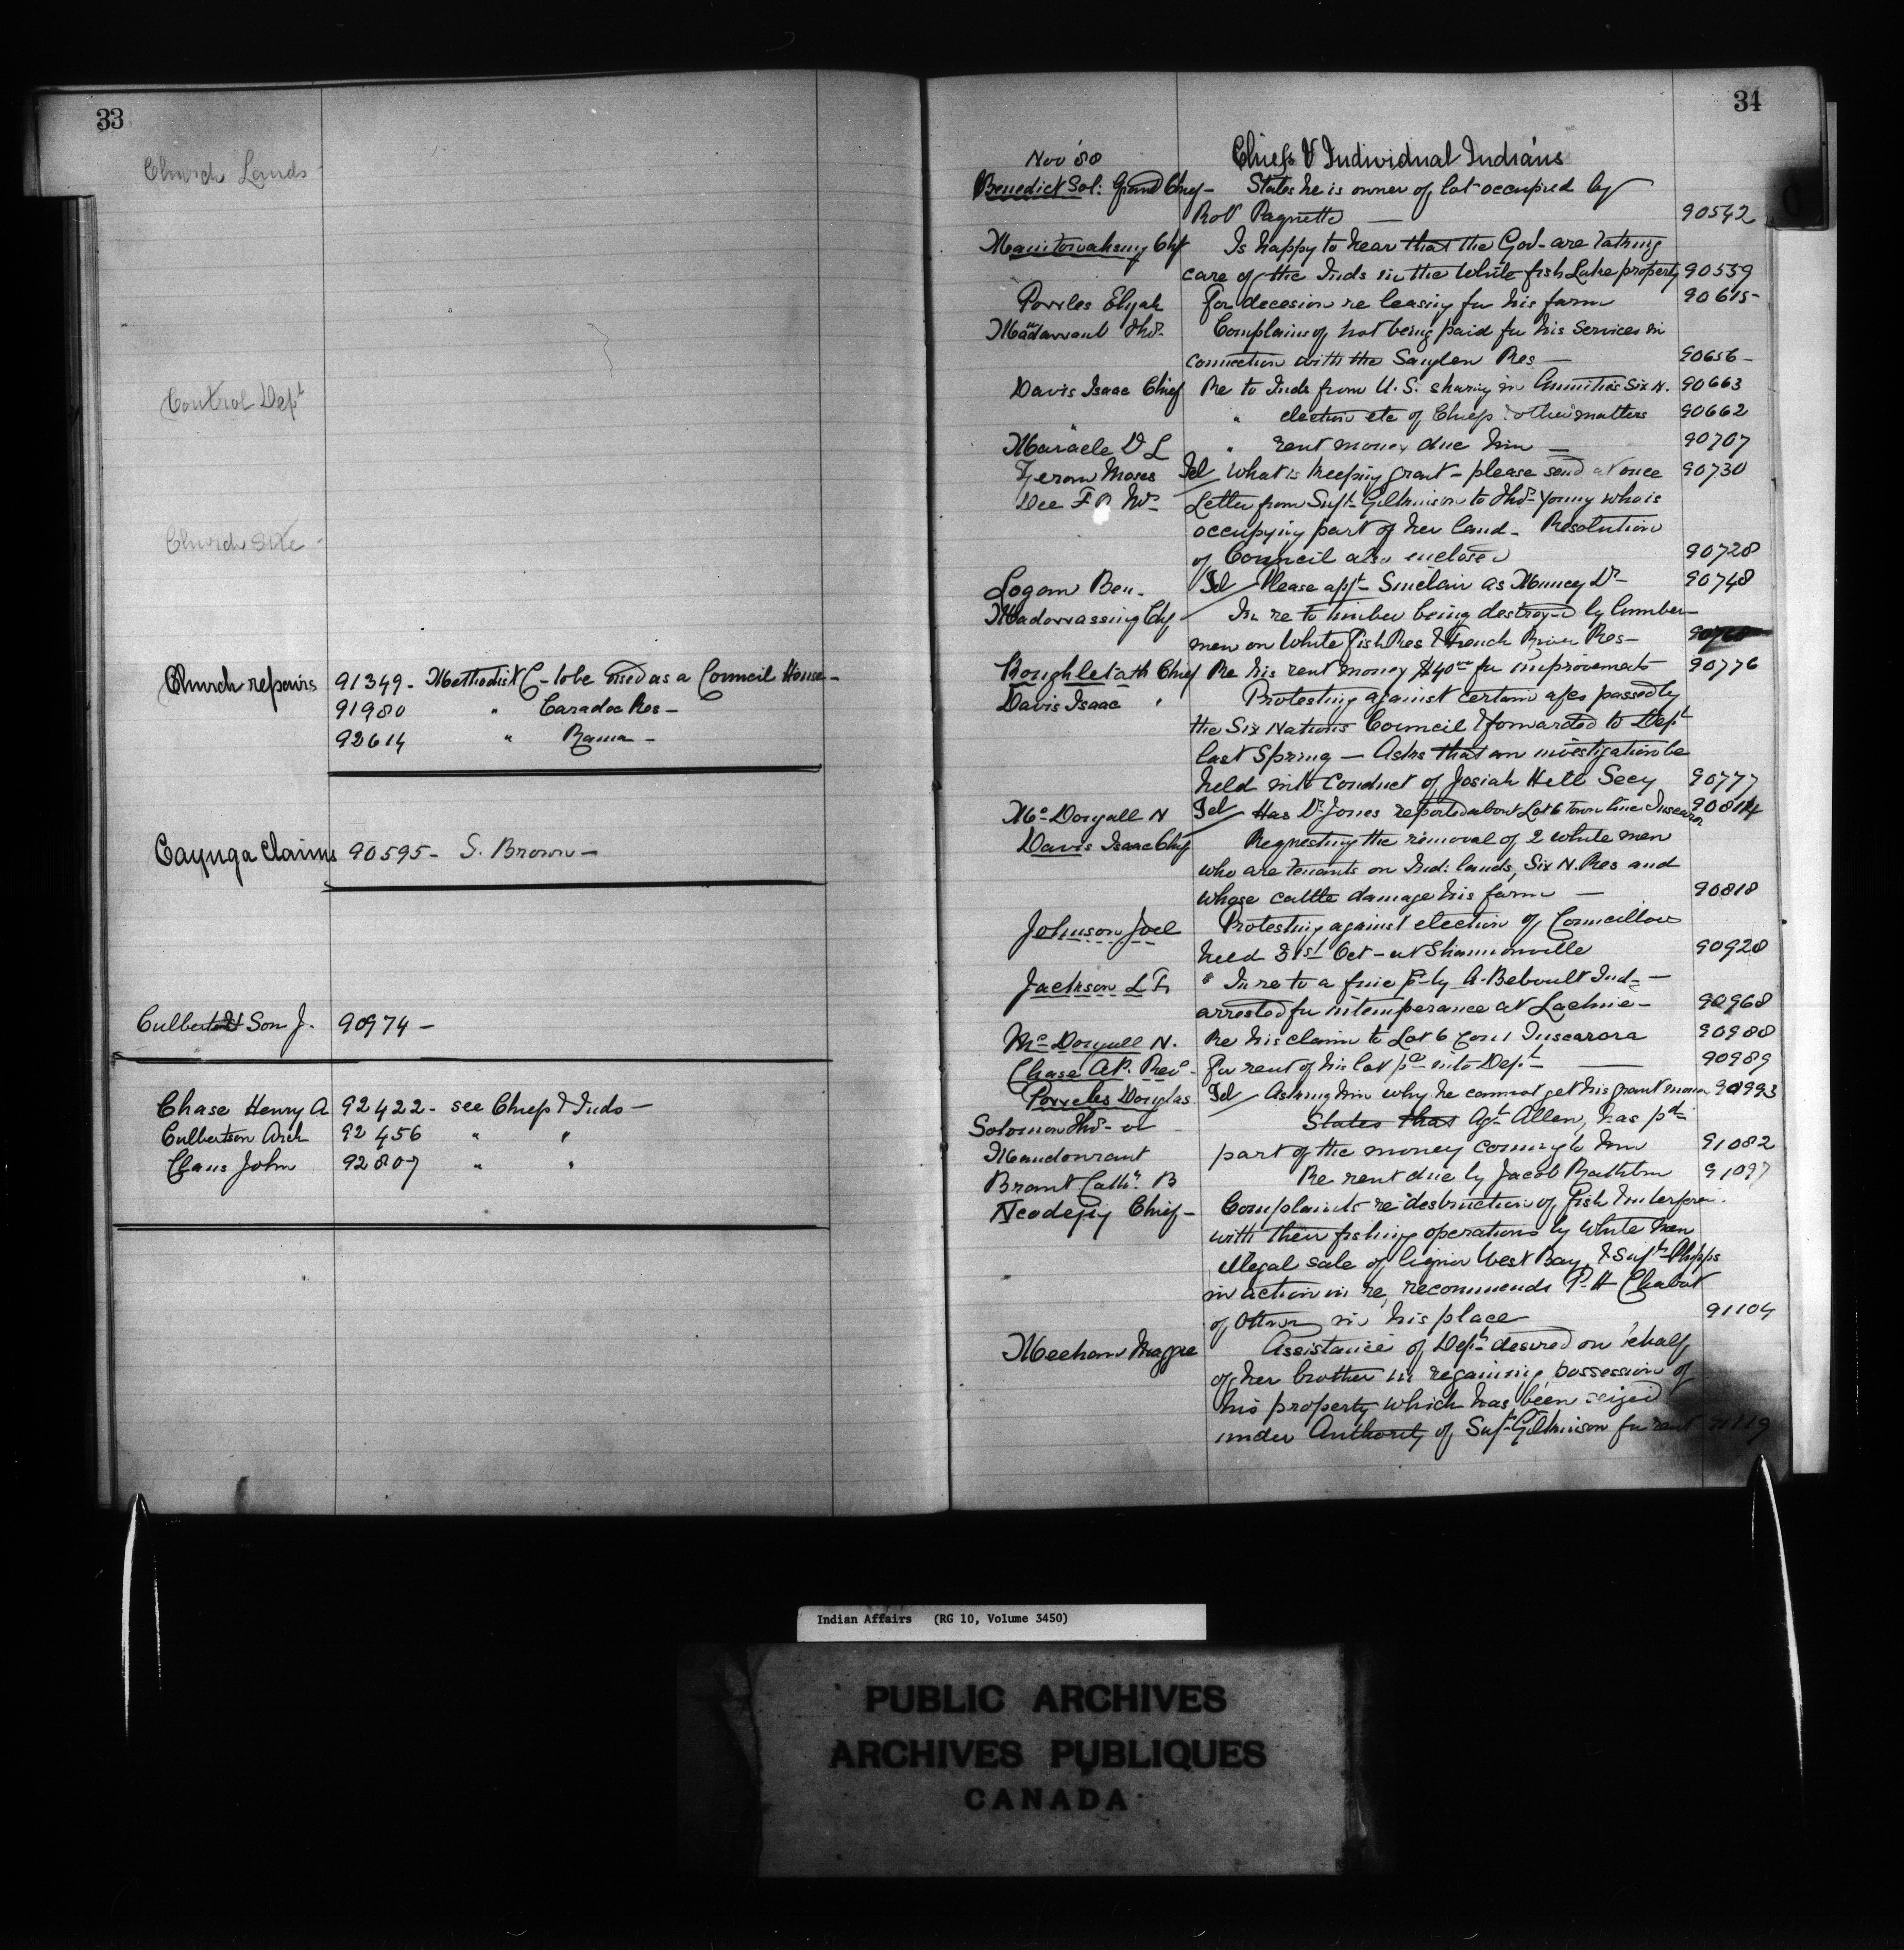 33
Church Lands -
Control Dept
Church site -
Church repairs 91349 - Methodist C - to be used as a Council House -
91980 " Caradoc Res -
92614 " Rama -
Cayuga Claims 90595 - S. Brown -
Culbert Son J. 90974 -
Chase Henry A 92422 - see Chiefs & Inds -
Culbertson Arch 92456 " "
Claus John 92807 " "
34
Nov '88 Chiefs & Individual Indians
Benedict Sol: Grand Chief - States he is owner of lot occupied by
Robt Paquette — 90542
Manitowahsing Chf Is happy to hear that the Govt are taking
care of the Inds in the White fish Lake property 90559
Powles Elijah For decesion re leasing for his farm 90615 -
Thos Complains of not being paid for his services in
connection with the Saugeen Res — 90656 -
Davis Isaac Chief Re to Inds from U.S. sharing in Annuities Six N. 90663
" election etc of Chiefs & other matters 90662
Maracle D L " rent money due him — 90707
Moses Tel What is keeping grant - please send at once 90730
Dee F R Mrs Letter from Supt Gilkinson to Thos Young who is
occupying part of her land - Resolution
of Council also enclosed 90728
Logan Ben. Tel Please appt Sinclair as Muncey Dr 90748
Madowassing Chf In re to timber being destroyed by lumber-
men on White Fish Res & French River Res -
Chief Re his rent money $40 00 for improvements 90776
Davis Isaac " Protesting against certain a/cs passed by
the Six Nations Council & forwarded to Dept
last Spring — Asks that an investigation be
held into conduct of Josiah Hill Secy 90777
Mc Dougall N Tel Has Dr Jones reported about Lot 6 Town line Tuscarora 90814
Davis Isaac Chf Requesting the removal of 2 white men
who are tenants on Ind: lands, Six N. Res and
whose cattle damage his farm — 90818
Johnson Joel Protesting against election of Councillors
held 31st Oct - at Shannonville 90920
Jackson L F. " In re to a fine pd by A. Ind -
arrested for intemperance at Lachine - 90968
Mc Dougall N. Re his claim to Lot 6 Con 1 Tuscarora 90988
Chase A.P. Revd - For rent of his lot pd into Dept — 90989
Powles Douglas Tel Asking him why he cannot get his grant money 90993
Solomon Thos - or States that Agt Allen, has pd
part of the money coming to him 91082
Brant Cath. B Re rent due by Jacob 91097
Chief - Complaints re destruction of fish & interfern.
with their fishing operations by White men
illegal sale of liquor West Bay, & Supt Phipps
in action in re, recommends P. H Chabot
of Ottawa in his place 91104
Meehan Maggie Assistance of Dept desired on behalf
of her brother in regaining possession of
his property which has been seized
under Authority of Supt Gilkinson for rent 91119
Indian Affairs (RG 10, Volume 3450)
PUBLIC ARCHIVES
ARCHIVES PUBLIQUES
CANADA